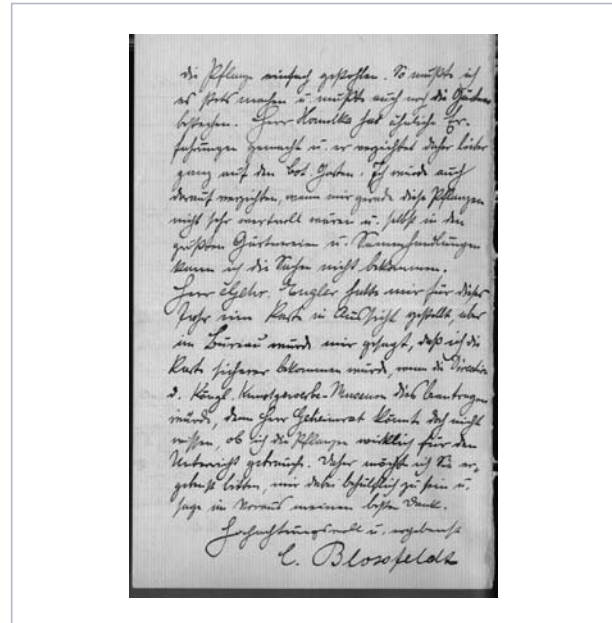 die Pflanze einfach gestohlen. So mußte ich
es stets machen u. mußte auch noch die Gärtner
bestechen. Herr Homolka hat ähnliche Er-
fahrungen gemacht u. er verzichtet daher lieber
ganz auf den bot. Garten. Ich würde auch
darauf verzichten, wenn mir gerade diese Pflanzen
nicht sehr wertvoll wären u. selbst in den
größten Gärtnereien u. Samenhandlungen
kann ich die Sachen nicht bekommen.
Herr Gehr. Engler hatte mir für dieses
Jahr eine Karte in Aussicht gestellt, aber
im Bureau wurde mir gesagt, daß ich die
Karte sicherer bekommen würde, wenn die Direction
d. Königl. Kunstgewerbe-Museum dies beantragen
würde, denn Herr Geheimrat könnte doch nicht
wissen, ob ich die Pflanzen wirklich für den
Unterricht gebrauche. Daher möchte ich Sie er-
gebenst bitten, mir dabei behülflich zu sein u.
sage im Voraus meinen besten Dank.
Hochachtungsvoll u. ergebenst
C. Blossfeldt